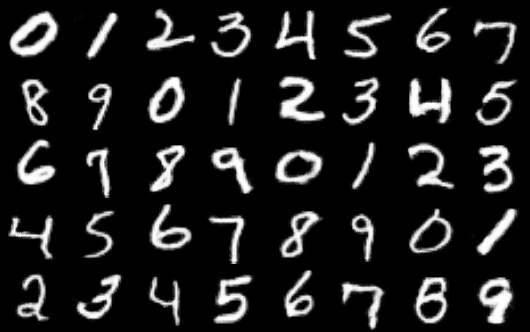 0 1 2 3 4 5 6 7
8 9 0 1 2 3 4 5
6 7 8 9 0 1 2 3
4 5 6 7 8 9 0 1
2 3 4 5 6 7 8 9